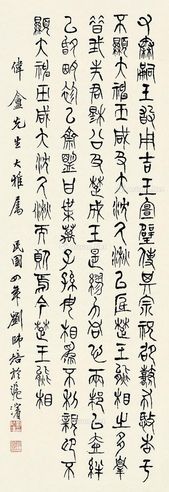 又秦嗣王敢用吉玉宣璧使其宗祝邵鼛布告于
不顯大神巫咸及大沈久湫以底楚王熊相之多辠
昔我先君穆公及楚成王是繆力同心兩邦以壹絆
以婚姻袗以齋盟曰枼萬子孫毋相為不利親卬不
顯大神巫咸大沈久湫而質焉今楚王熊相
偉盦先生大雅屬 民國四年劉師培於滬瀆